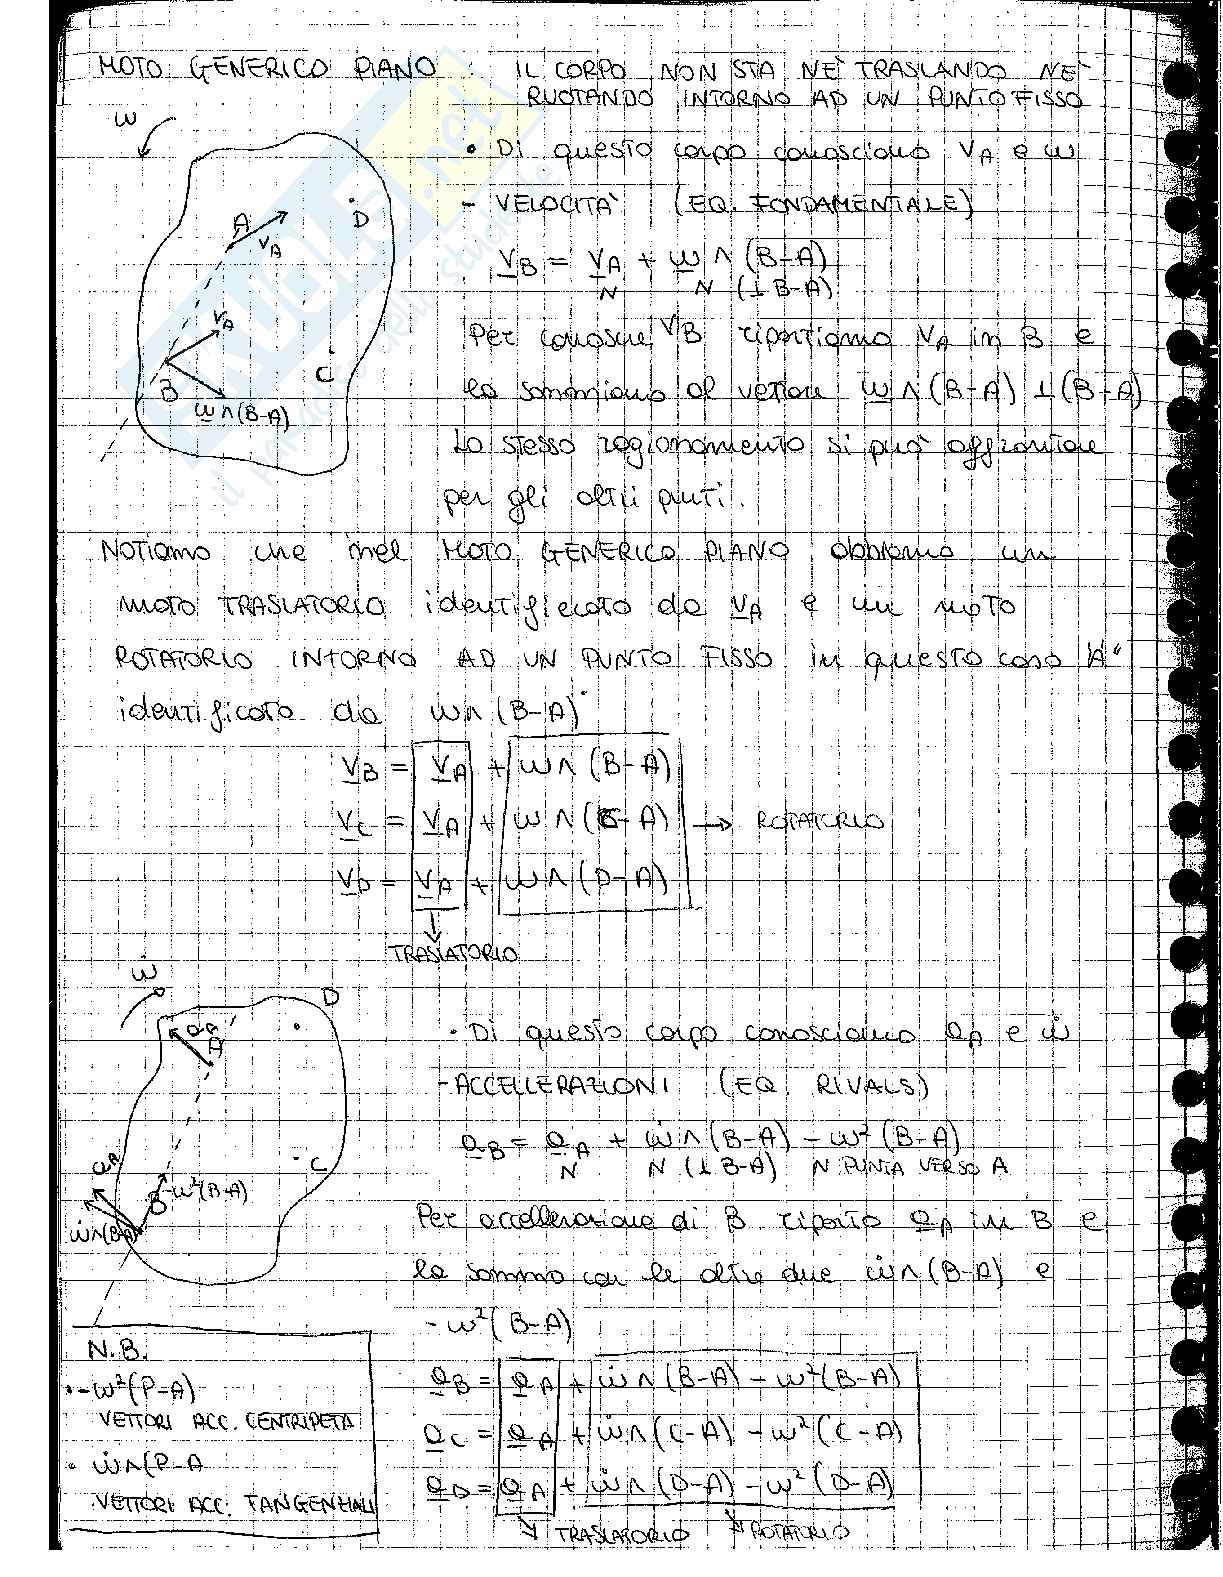 MOTO GENERICO PIANO : IL CORPO NON STA NE' TRASLANDO NE'
RUOTANDO INTORNO AD UN PUNTO FISSO
ω
• Di questo corpo conosciamo VA e ω
- VELOCITA' (EQ. FONDAMENTALE)
VB = VA + ω ∧ (B-A)
N N (⊥ B-A)
A
VA
D
VA
B
C
ω∧(B-A)
Per conoscere VB riportiamo VA in B e
lo sommiamo al vettore ω∧(B-A) ⊥(B-A)
Lo stesso ragionamento si può affrontare
per gli altri punti.
NOTIAMO che nel MOTO GENERICO PIANO abbiamo un
MOTO TRASLATORIO identificato da VA e un MOTO
ROTATORIO INTORNO AD UN PUNTO FISSO in questo caso "A"
identificato da ω∧(B-A)
VB = VA + ω∧(B-A)
VC = VA + ω∧(C-A) → ROTATORIO
VD = VA + ω∧(D-A)
TRASLATORIO
ω̇
D
aA
A
C
aA
B
-ω²(B-A)
ω̇∧(B-A)
• Di questo corpo conosciamo aA e ω̇
- ACCELLERAZIONI (EQ. RIVALS)
aB = aA + ω̇∧(B-A) - ω²(B-A)
N N (⊥ B-A) N PUNTA VERSO A
Per accellerazione di B riporto aA in B e
la sommo con le altre due ω̇∧(B-A) e
-ω²(B-A)
aB = aA + ω̇∧(B-A) - ω²(B-A)
aC = aA + ω̇∧(C-A) - ω²(C-A)
aD = aA + ω̇∧(D-A) - ω²(D-A)
TRASLATORIO ROTATORIO
N.B.
• -ω²(P-A)
VETTORI ACC. CENTRIPETA
• ω̇∧(P-A
VETTORI ACC. TANGENZIALI